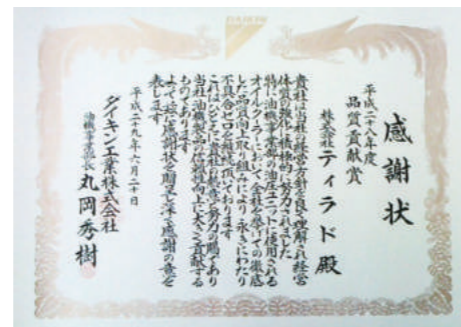 DAIKIN
感謝状
平成二十八年度
品質貢献賞
株式会社ティラド殿
貴社は当社の経営方針を良く理解され経営
体質の強化に積極的に努力されました
特に油機事業部の油圧ユニットに使用される
オイルクーラにおいて全社を挙げての徹底
した品質向上取り組みにより永きにわたり
不具合ゼロを継続頂いております
これはひとえに貴社の懸命な努力の賜であり
当社油機製品の信頼性向上に大きく貢献する
ものであります
よって茲に感謝状を贈呈し深く感謝の意を
表します
平成二十九年六月二十日
ダイキン工業株式会社
油機事業部長 丸岡秀樹